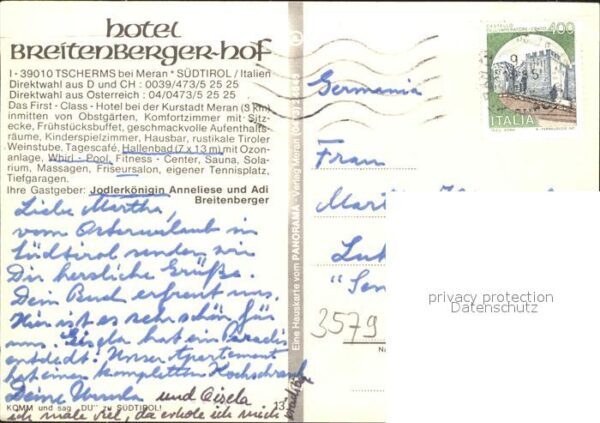 hotel
BREITENBERGER-hof
I - 39010 TSCHERMS bei Meran * SÜDTIROL / Italien
Direktwahl aus D und CH : 0039/473/5 25 25
Direktwahl aus Österreich : 04/0473/5 25 25
Das First - Class - Hotel bei der Kurstadt Meran (3 km)
inmitten von Obstgärten, Komfortzimmer mit Sitz-
ecke, Frühstücksbuffet, geschmackvolle Aufenthalts-
räume, Kinderspielzimmer, Hausbar, rustikale Tiroler
Weinstube, Tagescafé, Hallenbad (7 x 13 m) mit Ozon-
anlage, Whirl - Pool, Fitness - Center, Sauna, Sola-
rium, Massagen, Friseursalon, eigener Tennisplatz,
Tiefgaragen.
Ihre Gastgeber: Jodlerkönigin Anneliese und Adi
Breitenberger
Liebe Martha,
vom Osterurlaub in
Südtirol senden wir
Dir herzliche Grüße.
Dein Buch erfreut uns.
Hier ist es sehr schön für
uns. Gisela hat ein Paradis
entdeckt. Unser Apartement
hat einen kompletten Hochschrank
Deine Ursula und Gisela
KOMM und sag "DU" zu SÜDTIROL!
ich male viel, da erhole ich mich
Eine Hauskarte vom PANORAMA - Verlag Meran
400
ITALIA
Germania
Frau
3579
privacy protection
Datenschutz